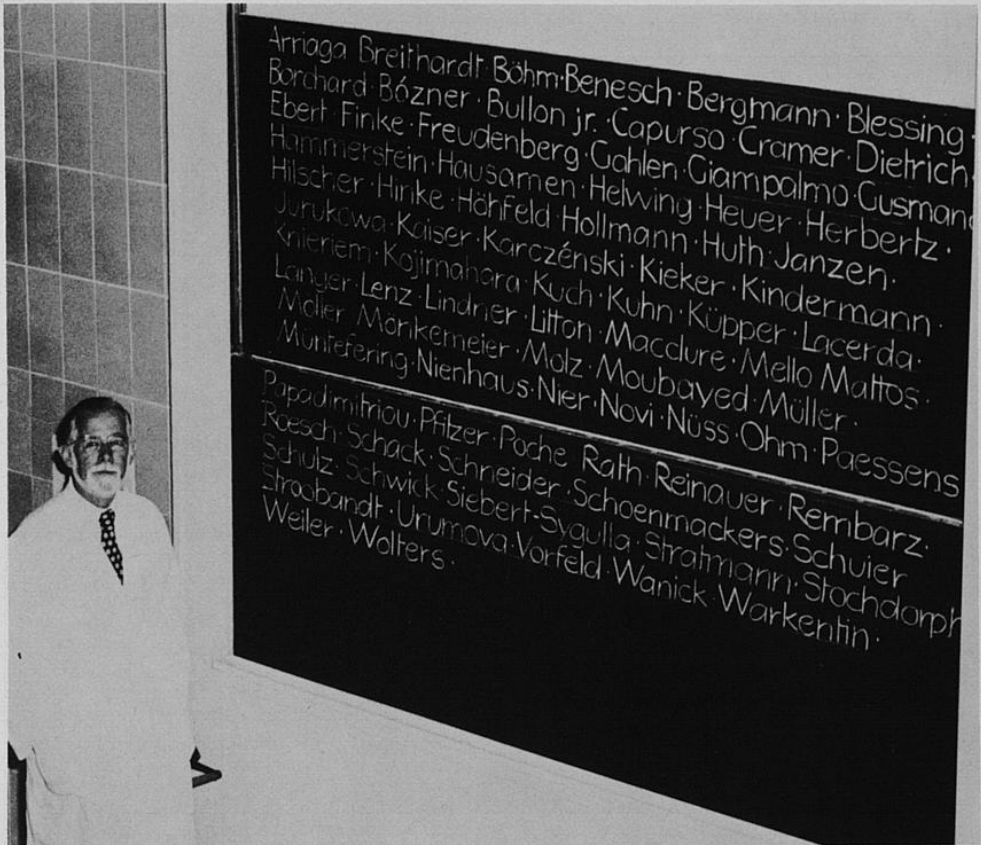 Arriaga Breithardt·Böhm·Benesch·Bergmann·Blessing·
Borchard·Bózner·Bullon jr.·Capurso·Cramer·Dietrich·
Ebert·Finke·Freudenberg·Gahlen·Giampalmo·Gusmano
Hammerstein·Hausamen·Helwing·Heuer·Herbertz·
Hilscher·Hinke·Höhfeld·Hollmann·Huth·Janzen·
Jurukowa·Kaiser·Karczénski·Kieker·Kindermann·
Knieriem·Kojimahara·Kuch·Kuhn·Küpper·Lacerda·
Langer·Lenz·Lindner·Litton·Macclure·Mello Mattos·
Möller Mönkemeier·Molz·Moubayed·Müller·
Müntefering·Nienhaus·Nier·Novi·Nüss·Ohm·Paessens
Papadimitriou·Pfitzer·Poche Rath·Reinauer·Rembarz·
Roesch·Schack·Schneider·Schoenmackers·Schuier
Schulz·Schwick·Siebert·Sygulla·Stratmann·Stochdorph
Stroobandt·Urumova·Vorfeld·Wanick·Warkentin·
Weiler·Wolters·